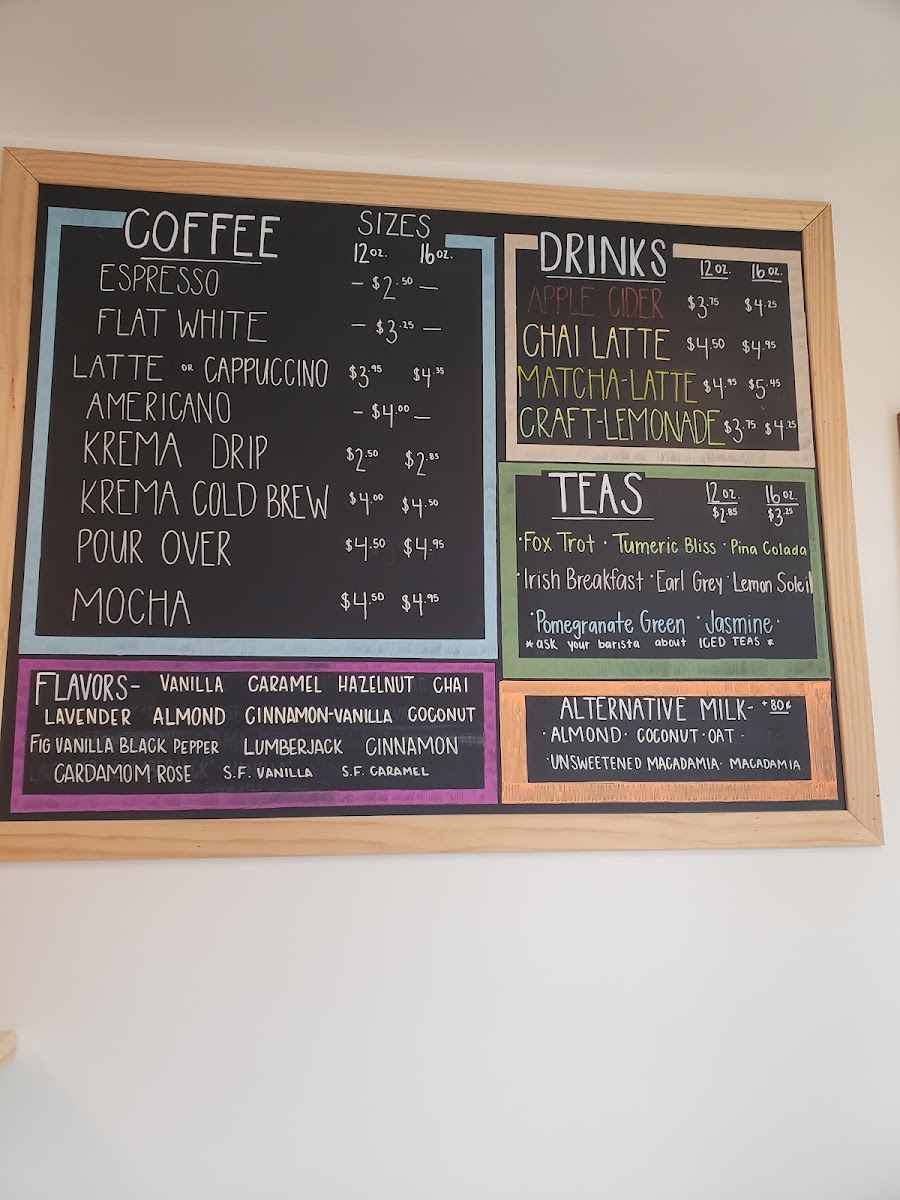 COFFEE SIZES
12oz. 16oz.
ESPRESSO - $2.50 -
FLAT WHITE - $3.25 -
LATTE OR CAPPUCCINO $3.95 $4.35
AMERICANO - $4.00 -
KREMA DRIP $2.50 $2.85
KREMA COLD BREW $4.00 $4.50
POUR OVER $4.50 $4.95
MOCHA $4.50 $4.95
FLAVORS- VANILLA CARAMEL HAZELNUT CHAI
LAVENDER ALMOND CINNAMON-VANILLA COCONUT
FIG VANILLA BLACK PEPPER LUMBERJACK CINNAMON
CARDAMOM ROSE S.F. VANILLA S.F. CARAMEL
DRINKS 12oz. 16oz.
APPLE CIDER $3.75 $4.25
CHAI LATTE $4.50 $4.95
MATCHA-LATTE $4.95 $5.45
CRAFT-LEMONADE $3.75 $4.25
TEAS 12oz. 16oz.
$2.85 $3.25
·Fox Trot · Tumeric Bliss · Pina Colada
·Irish Breakfast ·Earl Grey ·Lemon Soleil
·Pomegranate Green · Jasmine·
*ask your barista about ICED TEAS *
ALTERNATIVE MILK- +80¢
·ALMOND· COCONUT·OAT·
·UNSWEETENED MACADAMIA· MACADAMIA